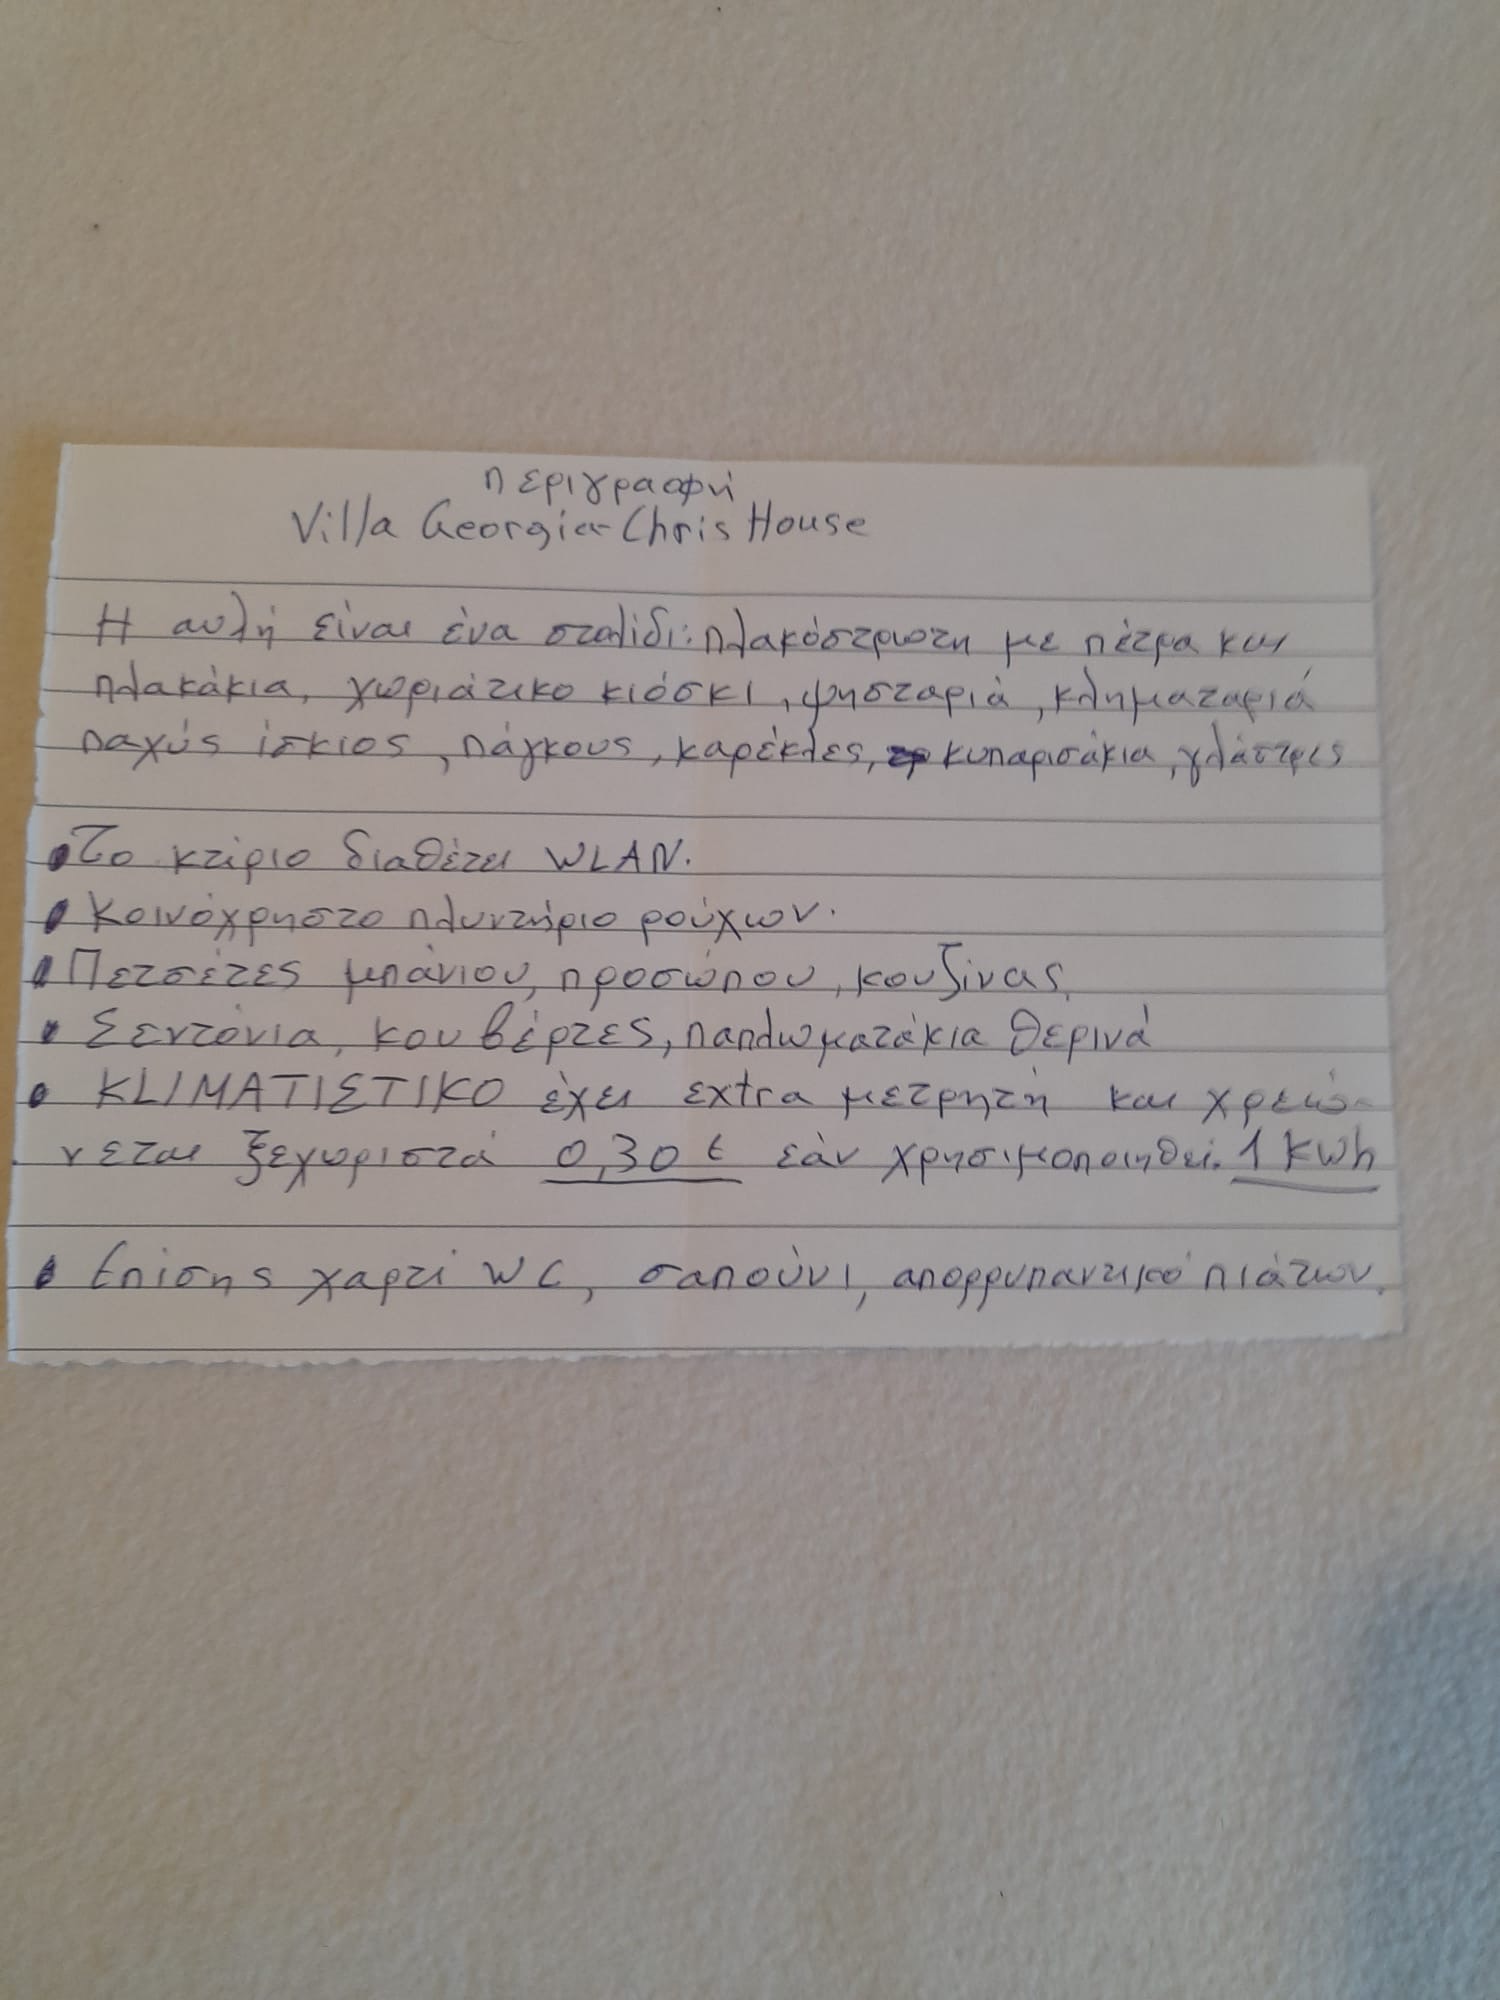 περιγραφή
Villa Georgia-Chris House
Η αυλή είναι ένα στολίδι: πλακόστρωτη με πέτρα και
πλακάκια, χωριάτικο κιόσκι, ψησταριά, κληματαριά
παχύς ίσκιος, πάγκους, καρέκλες, κυπαρισάκια, γλάστρες
• Το κτίριο διαθέτει WLAN.
• Κοινόχρηστο πλυντήριο ρούχων.
• Πετσέτες μπάνιου, προσώπου, κουζίνας,
• Σεντόνια, κουβέρτες, παπλωματάκια θερινά
• KLIMATIΣTIKO έχει extra μετρητή και χρεώ-
νεται ξεχωριστά 0,30 € εάν χρησιμοποιηθεί. 1 KWh
• Επίσης χαρτί WC, σαπούνι, απορρυπαντικό πιάτων.